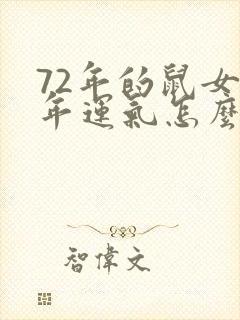 72年的鼠女
年運氣怎麼
智偉文